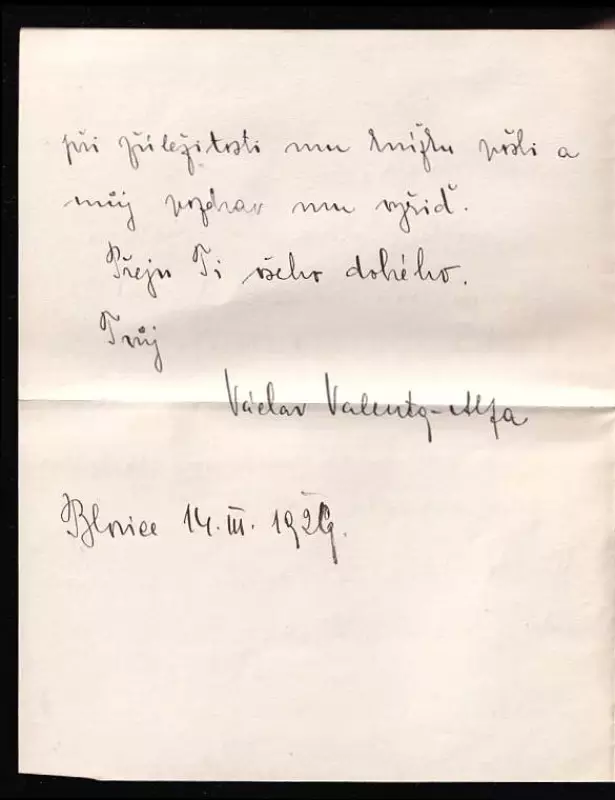 při příležitosti mu knížku pošli a
můj pozdrav mu vyřiď.
Přeju Ti všeho dobrého.
Tvůj
Václav Valenta-Alfa
Blovice 14. III. 1929.